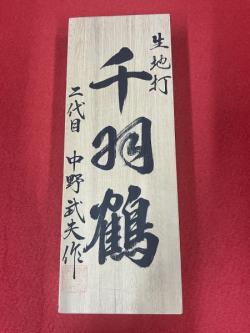 生地打
千羽鶴
二代目 中野武夫作